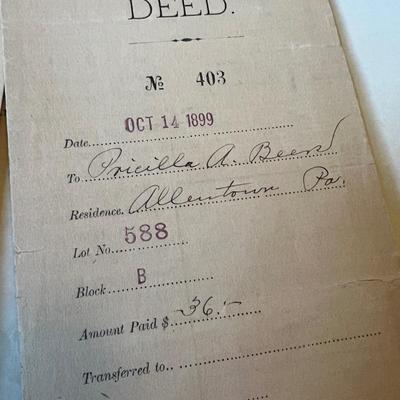 DEED.
№ 403
Date OCT 14 1899
To Pricilla A. Beers
Residence. Allentown Pa.
Lot No. 588
Block B
Amount Paid $ 36.-
Transferred to